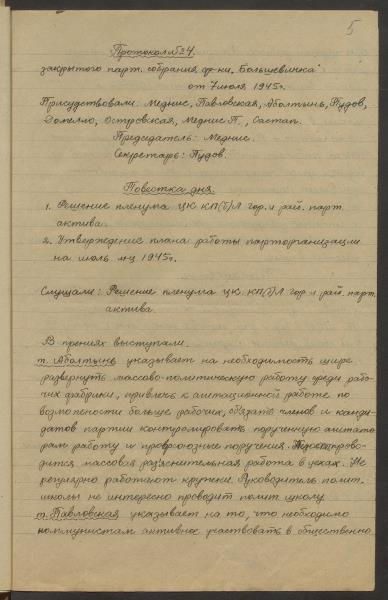 5
Протокол №4.
закрытого парт. собрания ф-ки „Большевичка"
от 7 июля 1945г.
Присудствовали: Меднис, Павловская, Аболтынь, Пудов,
Домелно, Островская, Меднис П., Састап.
Председатель: Меднис.
Секретарь: Пудов.
Повестка дня.
1. Решение пленума ЦК КП(б)Л гор. и рай. парт.
актива.
2. Утверждение плана работы парторганизации
на июль м-ц 1945г.
Слушали: Решение пленума ЦК КП(б)Л гор. и рай. парт.
актива.
В прениях выступали.
т. Аболтынь указывает на необходимость шире
развернуть массово-политическую работу среди рабо-
чих фабрики, привлечь к агитационной работе по
возможности больше рабочих, обязать членов и канди-
датов партии контролировать порученную агитато
рам работу и профсоюзные поручения. прово-
дится массовая разяснительная работа в цехах. Не
регулярно работают кружки. Руководитель полит-
школы не интересно проводит полит школу
т. Павловская указывает на то, что необходимо
коммунистам активное участвовать в общественно